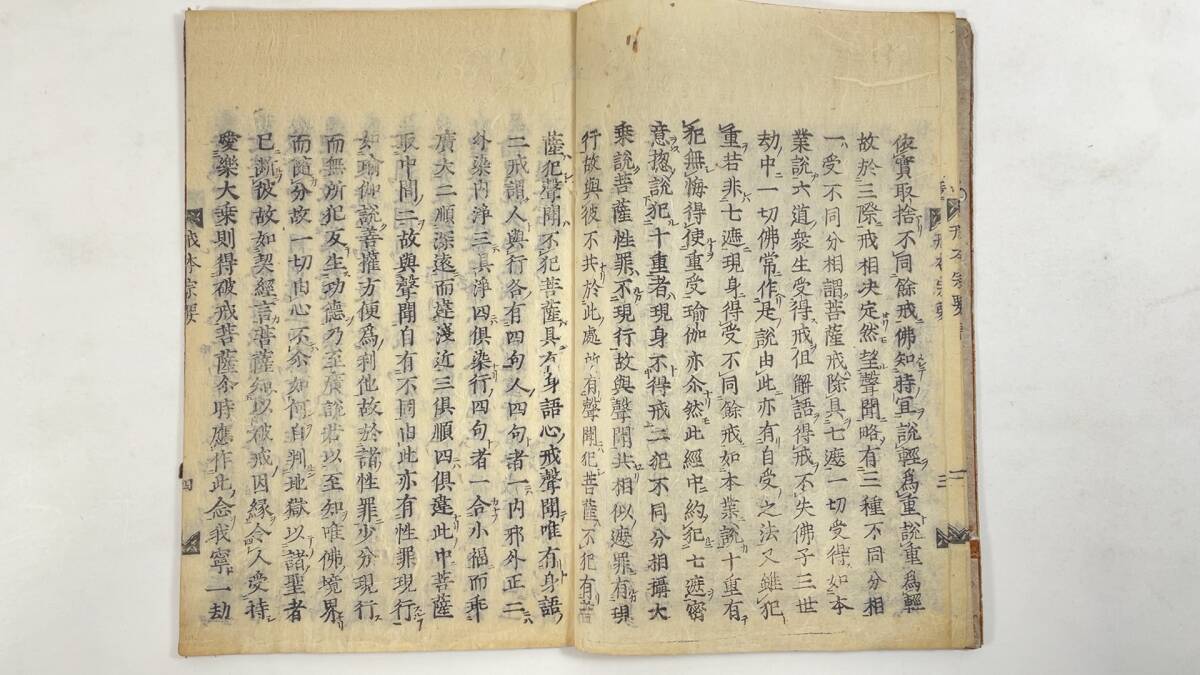 俊實取捨不同餘戒佛知時宜說輕爲重說重爲輕
故於三際戒相決定然望聲聞略有三種不同分相
一受不同分相謂菩薩戒除具七遮一切受得如本
業說六道衆生受得戒但解語得戒不失佛子三世
劫中一切佛常作是說由此亦有自受之法又雖犯
重若非七遮現身得受不同餘戒如本業說十重有
犯無悔得使重受瑜伽亦尒然此經中約犯七遮密
意揔說犯十重者現身不得戒二犯不同分相攝大
乘說菩薩性罪不現行故與聲聞共相似遮罪有現
行故與彼不共於此處所有聲聞犯菩薩不犯有菩
薩犯聲聞不犯菩薩具身語心戒聲聞唯有身語
二戒謂人與行各有四句人四句者一內邪外正二
外染內淨三具淨四俱染行四句者一合小福而乖
廣大二順深遠而違淺近三俱順四俱違此中菩薩
取中間二故與聲聞自有不同由此亦有性罪現行
如瑜伽說善權方便爲利他故於諸性罪少分現行
而無所犯反生功德乃至廣說若以至知唯佛境界
而隨分故一切由心不尒如何自判地獄以諸聖者
已斷彼故如契經言菩薩知以破戒因緣令人受持
愛樂大乘則得破戒菩薩尒時應作此念我寧一劫
戒本宗要
四
戒本宗要
三